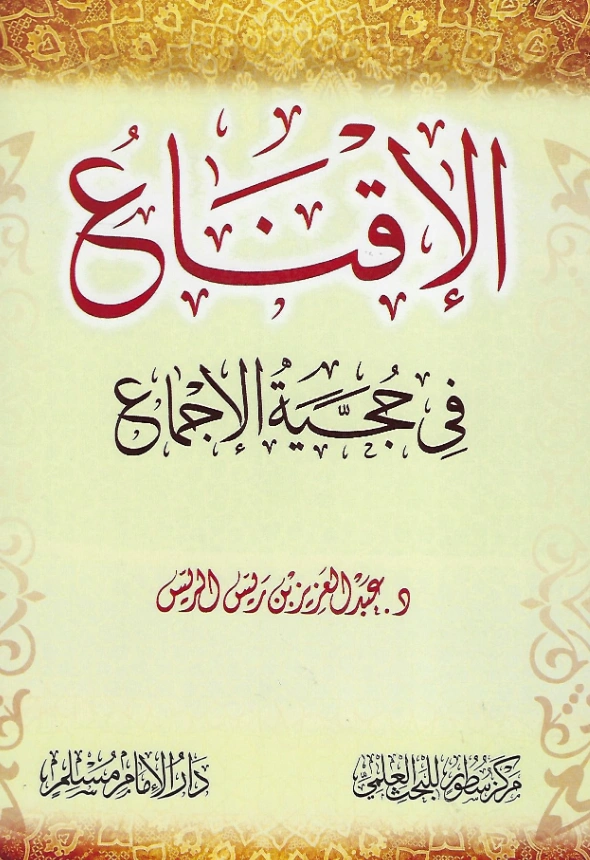 الإقناع
في حجية الإجماع
د. عبد العزيز بن ريس الريس
مركز سطور للبحث العلمي
دار الإمام مسلم